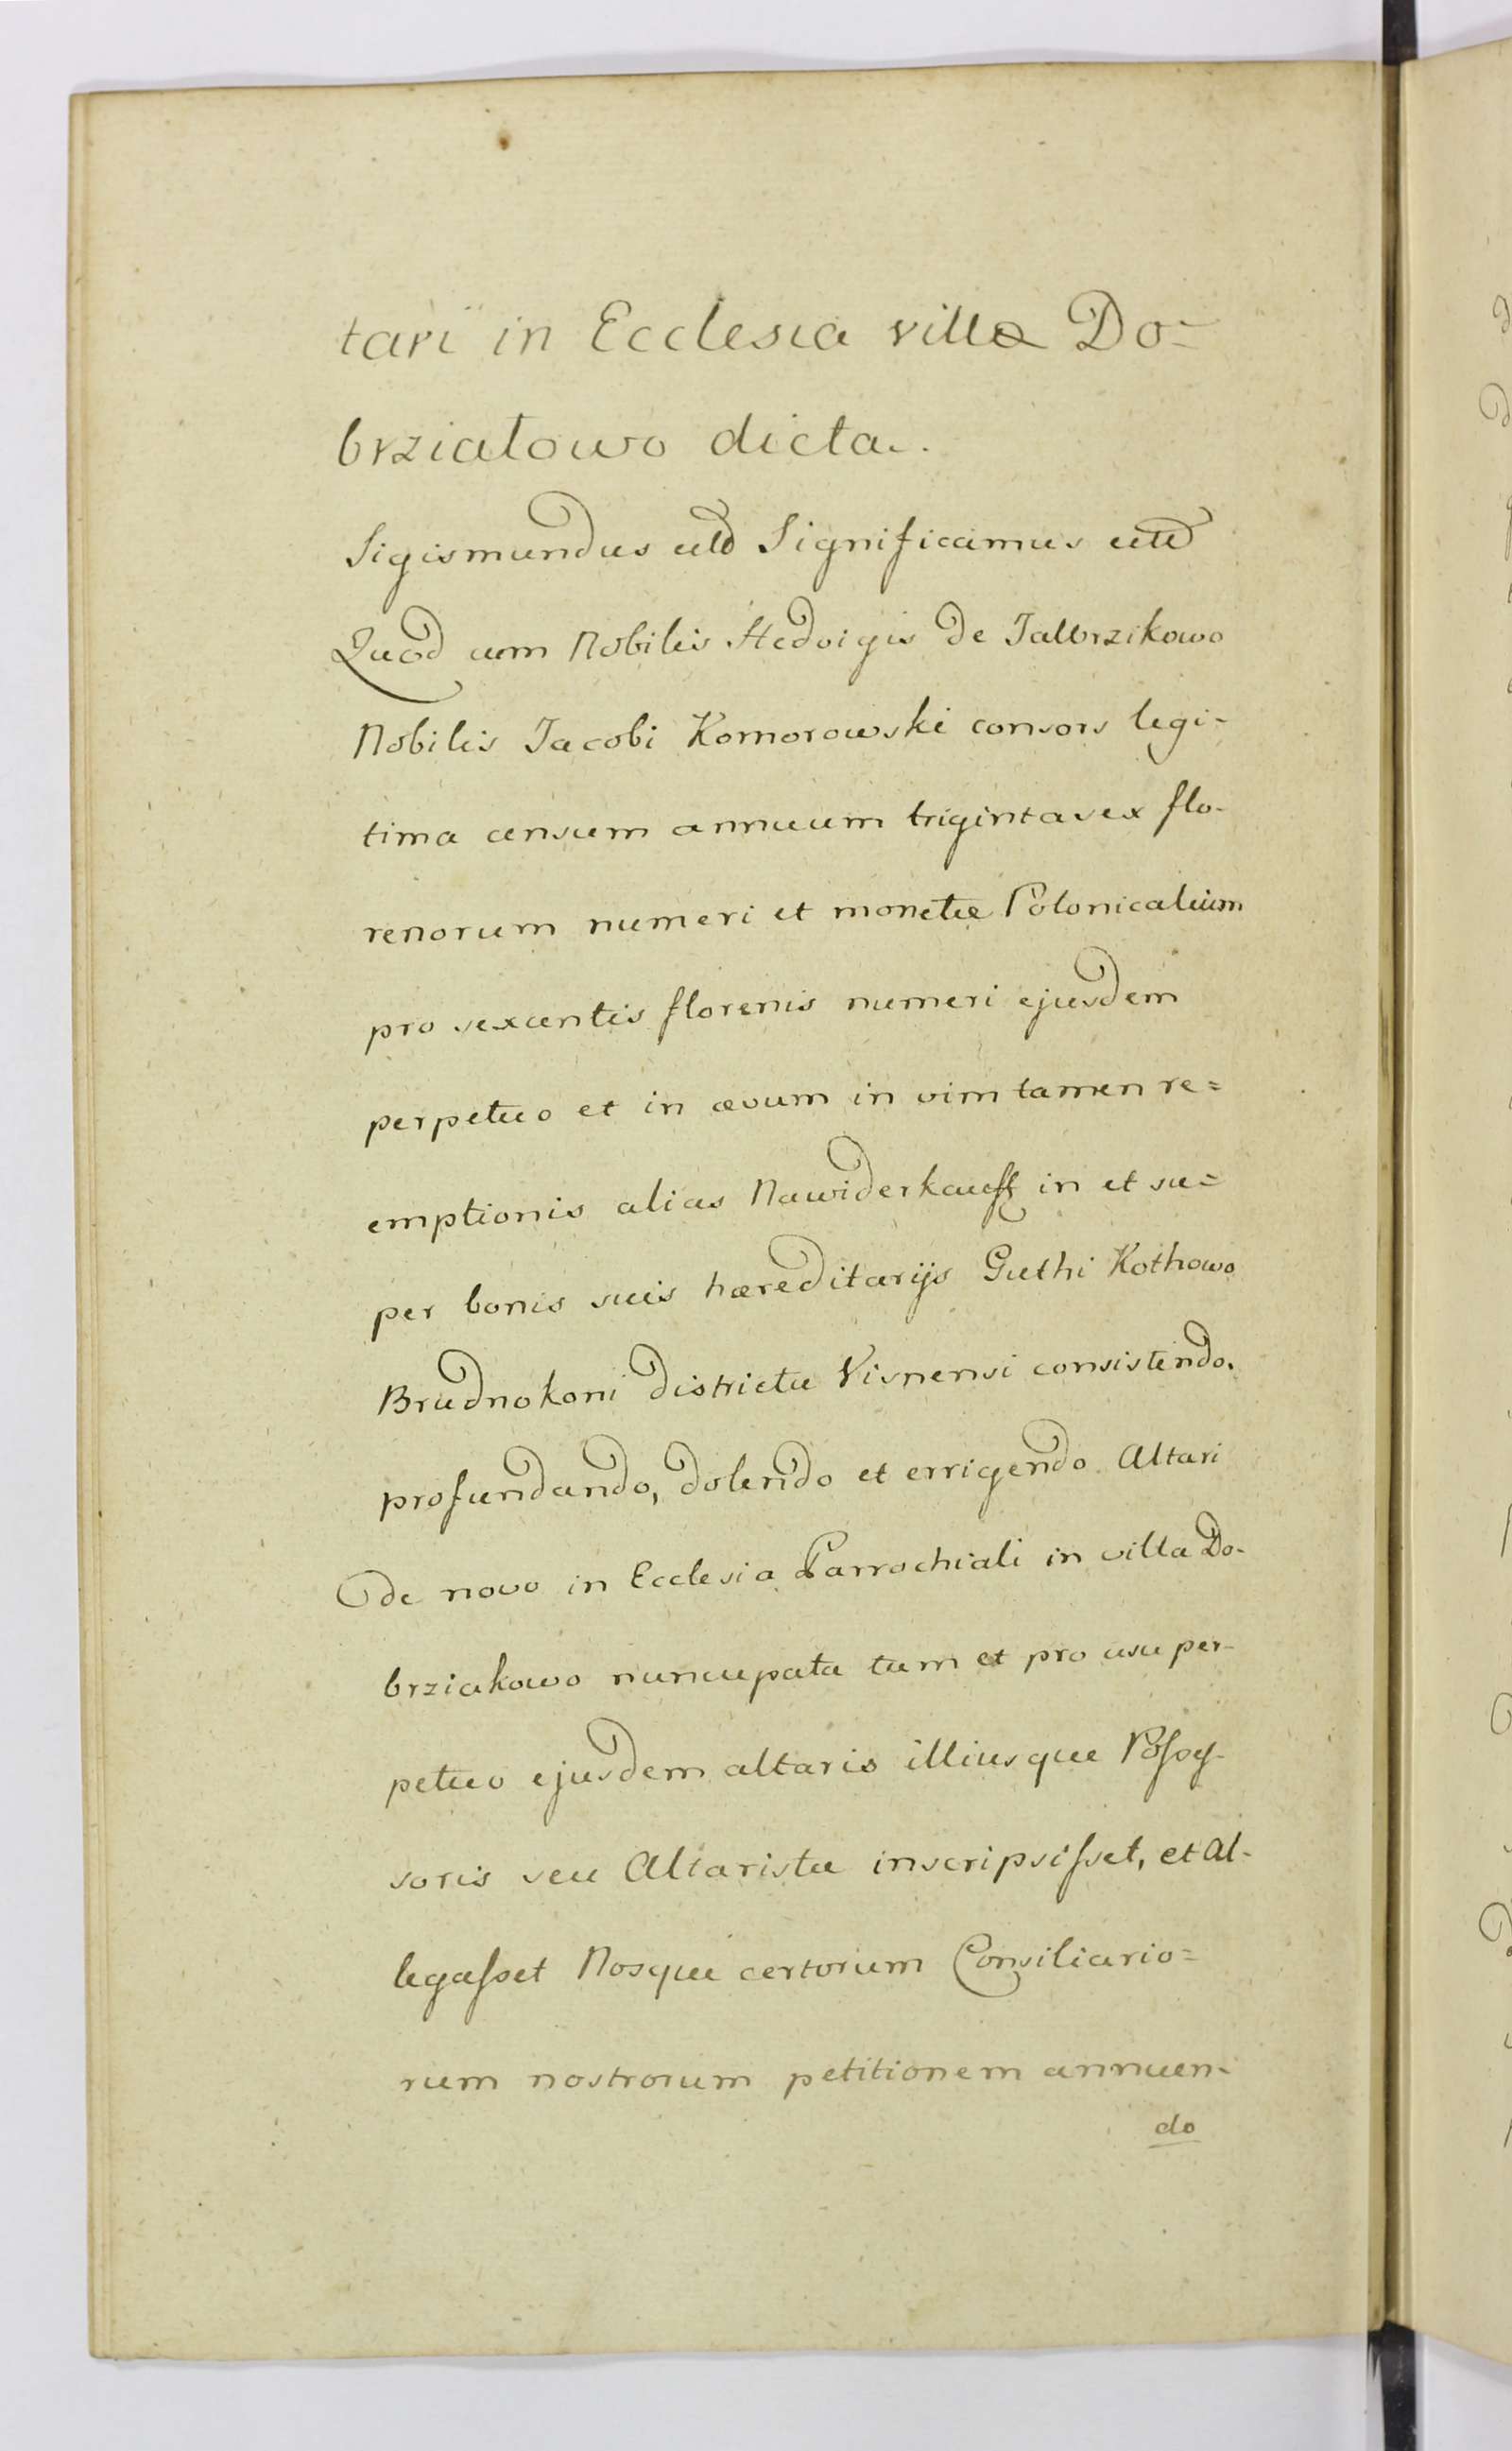 tari in Ecclesia villæ Do-
brzialowo dicta.
Sigismundus utd Significamus utd
Quod cum Nobilis Hedvigis de Jalbrzikowo
Nobilis Jacobi Komorowski consors legi-
tima censum annuum triginta sex flo-
renorum numeri et monetæ Polonicalium
pro sexcentis florenis numeri ejusdem
perpetuo et in ævum in vim tamen re=
emptionis alias Nawiderkauff in et su=
per bonis suis hæreditarijs Guthi Kothowo
Brudnokoni districtu Visnensi consistendo.
profundando, dotendo et errigendo Altari
de novo in Ecclesia Parrochiali in villa Do-
brziakowo nuncupata tum et pro usu per-
petuo ejusdem altaris illiusque Possys-
soris seu Altaristæ inscripsisset, et al-
legasset Nosque certorum Consiliario=
rum nostrorum petitionem annuen-
do